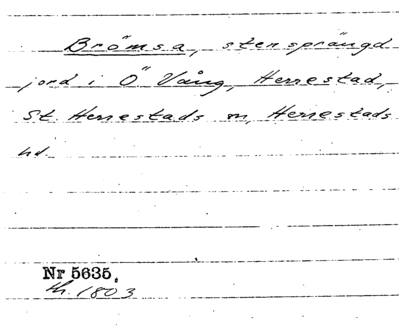 Brömsa, stensprängd
jord i Ö Vång, Herrestad,
St. Herrestads sn, Herrestads
hd.
Nr 5635.
th. 1803